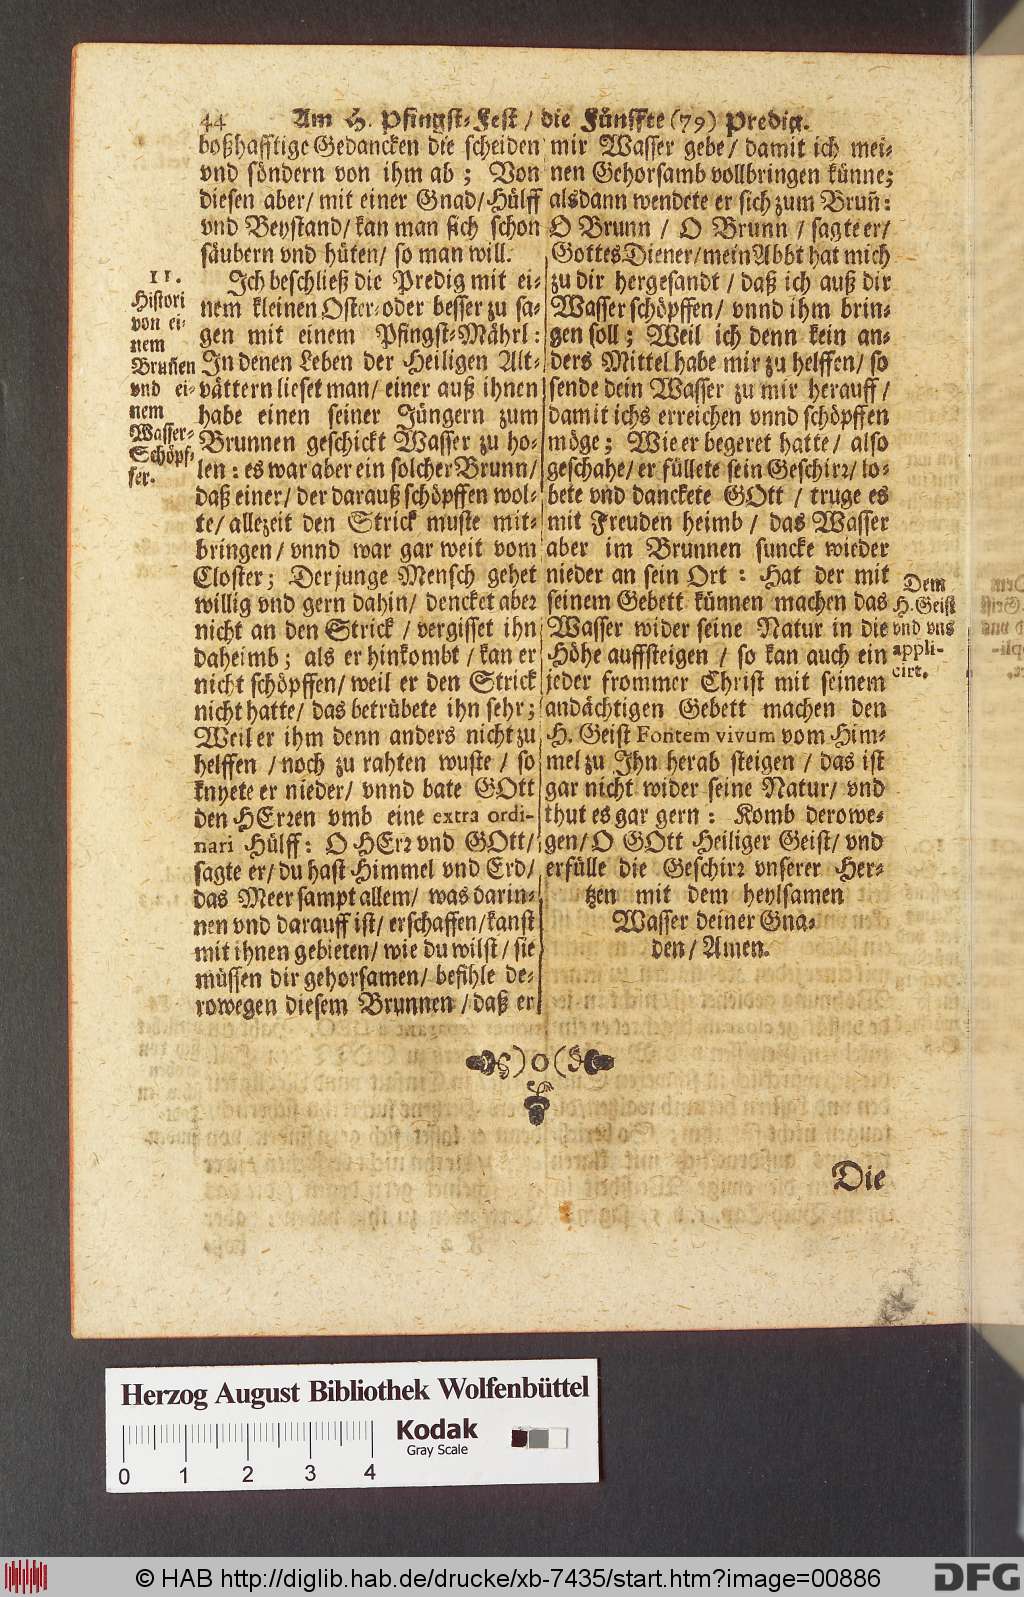 44 Am H. Pfingst-Fest / die Fünffte (79) Predig.
boßhafftige Gedancken die scheiden
vnd söndern von ihm ab; Von
diesen aber/ mit einer Gnad/ Hülff
vnd Beystand/ kan man sich schon
säubern vnd hüten/ so man will.
11.
Histori
von ei-
nem
Bruñen
vnd ei-
nem
Wasser-
Schöpf-
fer.
Ich beschließ die Predig mit ei-
nem kleinen Oster- oder besser zu sa-
gen mit einem Pfingst-Mährl:
In denen Leben der Heiligen Alt-
vättern lieset man/ einer auß ihnen
habe einen seiner Jüngern zum
Brunnen geschickt Wasser zu ho-
len: es war aber ein solcher Brunn/
daß einer/ der darauß schöpffen wol-
te/ allezeit den Strick muste mit-
bringen/ vnnd war gar weit vom
Closter; Der junge Mensch gehet
willig vnd gern dahin/ dencket aber
nicht an den Strick / vergisset ihn
daheimb; als er hinkombt / kan er
nicht schöpffen/ weil er den Strick
nicht hatte/ das betrübete ihn sehr;
Weil er ihm denn anders nicht zu
helffen / noch zu rahten wuste / so
knyete er nieder/ vnnd bate GOtt
den HErren vmb eine extra ordi-
nari Hülff: O HErr vnd GOtt/
sagte er/ du hast Himmel vnd Erd/
das Meer sampt allem/ was darin-
nen vnd darauff ist/ erschaffen/ kanst
mit ihnen gebieten/ wie du wilst/ sie
müssen dir gehorsamen/ befihle de-
rowegen diesem Brunnen / daß er
mir Wasser gebe/ damit ich mei-
nen Gehorsamb vollbringen künne;
alsdann wendete er sich zum Bruñ:
O Brunn / O Brunn / sagte er/
Gottes Diener/ mein Abbt hat mich
zu dir hergesandt / daß ich auß dir
Wasser schöpffen/ vnnd ihm brin-
gen soll; Weil ich denn kein an-
ders Mittel habe mir zu helffen/ so
sende dein Wasser zu mir herauff/
damit ichs erreichen vnnd schöpffen
möge; Wie er begeret hatte/ also
geschahe/ er füllete sein Geschirr/ lo-
bete vnd danckete GOtt / truge es
mit Freuden heimb / das Wasser
aber im Brunnen suncke wieder
nieder an sein Ort: Hat der mit
seinem Gebett künnen machen das
Wasser wider seine Natur in die
Höhe auffsteigen / so kan auch ein
jeder frommer Christ mit seinem
andächtigen Gebett machen den
H. Geist Fontem vivum vom Him-
mel zu Ihn herab steigen / das ist
gar nicht wider seine Natur/ vnd
thut es gar gern: Komb derowe-
gen/ O GOtt Heiliger Geist/ vnd
erfülle die Geschirr vnserer Her-
tzen mit dem heylsamen
Wasser deiner Gna-
den/ Amen.
Dem
H. Geist
vnd vns
appli-
cirt.
)o(
Die
Herzog August Bibliothek Wolfenbüttel
Kodak
Gray Scale
0 1 2 3 4
© HAB http://diglib.hab.de/drucke/xb-7435/start.htm?image=00886
DFG